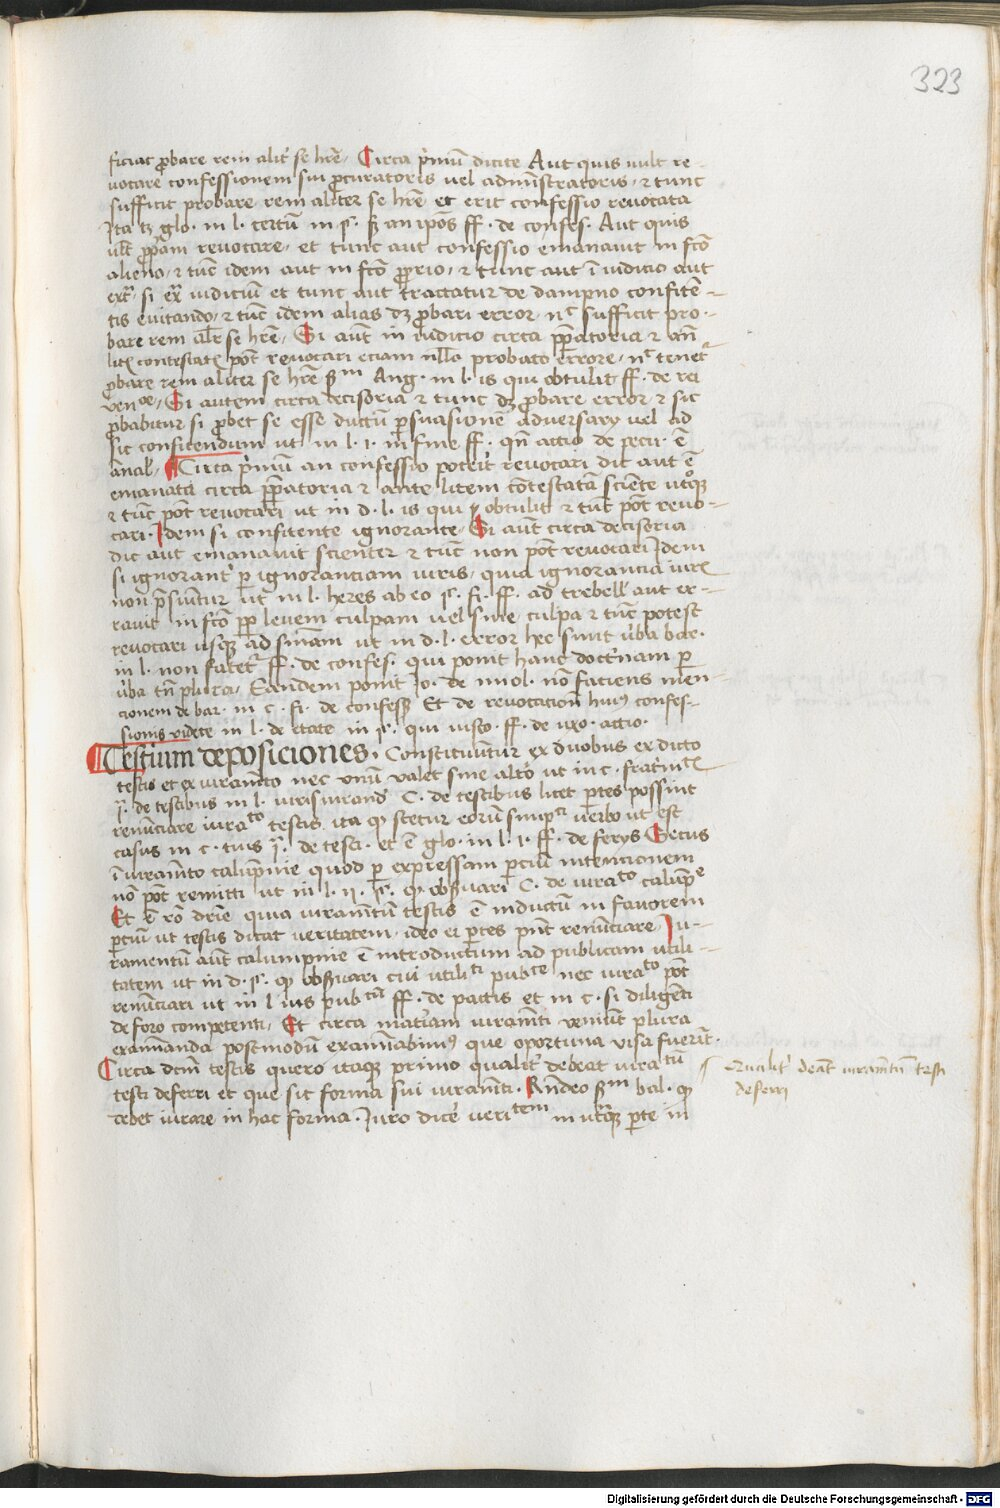 323
ficiat ꝓbare rem alit' se hr̄e Circa p'mū dicite Aut quis vult re-
vocare confessionem sui ꝓcuratoris vel administratoris · ⁊ tunc
sufficit probare rem aliter se hr̄e et erit confessio revocata
Ita tꝫ glo · in l · tertū in §
ff · de confes · Aut quis
vlt ꝓpriam revocare · et tunc aut confessio emanavit in fc̄o
alieno · ⁊ tūc idem aut in fc̄o ꝓprio · ⁊ tunc aut ī iudicio aut
extͣ · si exͣ iudiciū et tunc aut tractatur de dampno confitē-
tis evitando · ⁊ tūc idem alias dꝫ ꝓbari error · nͨ sufficit pro-
bare rem alr̄ se hr̄e · Si aūt in iudicio circa p̄patoria ⁊ an̄
litē contestatā pōt revocari eciam nll̄o probato errore · nͨ tenetͬ
ꝓbare rem aliter se hr̄e ẜm Ang · in l · is qui obtulit ff · de rei
ven · Si autem circa decisoria ⁊ tunc dꝫ ꝓbare error · ⁊ sic
ꝓbabitur si ꝓbet se esse ductū ꝑsuasionē adversarÿ vel ad
sic confitendum ut in l · 1 · in fine ff · qn̄ actio de pecu · ē
annal' · Circa p'mū an confessio poterit revocari dic aut ē
emanata circa p̄patoria ⁊ ante litem cōtestatā sciēte utqꝫ
⁊ tūc pōt revocari ut in d · l · is qui obtulit ⁊ tūc pōt revo-
cari · Idem si confitente ignorante · Si aūt circa decisoria
dic aut emanavit scienter ⁊ tūc non pōt revocari Idem
si ignorant' ꝑ ignoranciam iuris · quia ignorancia iuris
non p̄sumitur ut in l · heres ab eo § · fi · ff · ad trebell' aut er-
ravit in fc̄o ꝓp levem culpam vel sine culpa ⁊ tūc potest
revocari usqꝫ ad sn̄iam ut in d · l · error hec sunt v'ba bar ·
in l · non fatetͬ ff · de confes · qui ponit hanc doct'nam ꝑ
v'ba tn̄ plura · Eandem ponit Io · de imol · nō faciens men-
cionem de bar · in c · fi · de confess Et de revocatiōn huiꝰ confes-
sionis videte in l · de etate in § · qui iusto · ff · de
actio ·
Testium deposiciones · Constituūtur ex duobus ex dicto
testis et ex iuramēto nec unū valet sine altō ut in c ·
de testibus in l · iurisiurand' C · de testibus licet ꝑtes possint
renūciare iuraᵗᵒ testis ita ꝙ stetur eorū simpᶜⁱ verbo ut est
casus in c · tuis · de testi · et ē glo · in l · 1 · ff · de ferÿs Secus
ī iuramēto calūpnie quod ꝑ expressam ꝑciū intencionem
nō pōt remitti ut in l · ii · § · ꝙ obẜvari C · de iuraᵗᵒ calūpᵉ
Et ē rō dr̄ie quia iuramētū testis ē inductū in favorem
ꝑciū ut testis dicat veritatem · ideo ei ꝑtes pn̄t renūciare Iu-
ramentū aūt calumpnie ē introductum ad publicam utili-
tatem ut in d · § · ꝙ obẜvari cui utiliᵗⁱ pubᶜᵉ nec iuraᵗᵒ pōt
renūciari ut in l ius pubᶜᵘ̄ ff · de pactis et in c · si diligēti
de foro competenti · Et circa mat'iam iuramēti veniūt plura
examinanda postmodū examinabimꝰ que oportuna visa fuerīt ·
Circa dcm̄ testis quero itaqꝫ primo qualit' debeat iuraᵗᵘ̄
testi deferri et que sit forma sui iuramēti · Rn̄deo ẜm bal · ꝙ
debet iurare in hac forma · Iuro dic'e veriᵗᵉᵐ in utrāqꝫ ꝑte in
Qualit' deat iuramtū testi
deferri
Digitalisierung gefördert durch die Deutsche Forschungsgemeinschaft - DFG